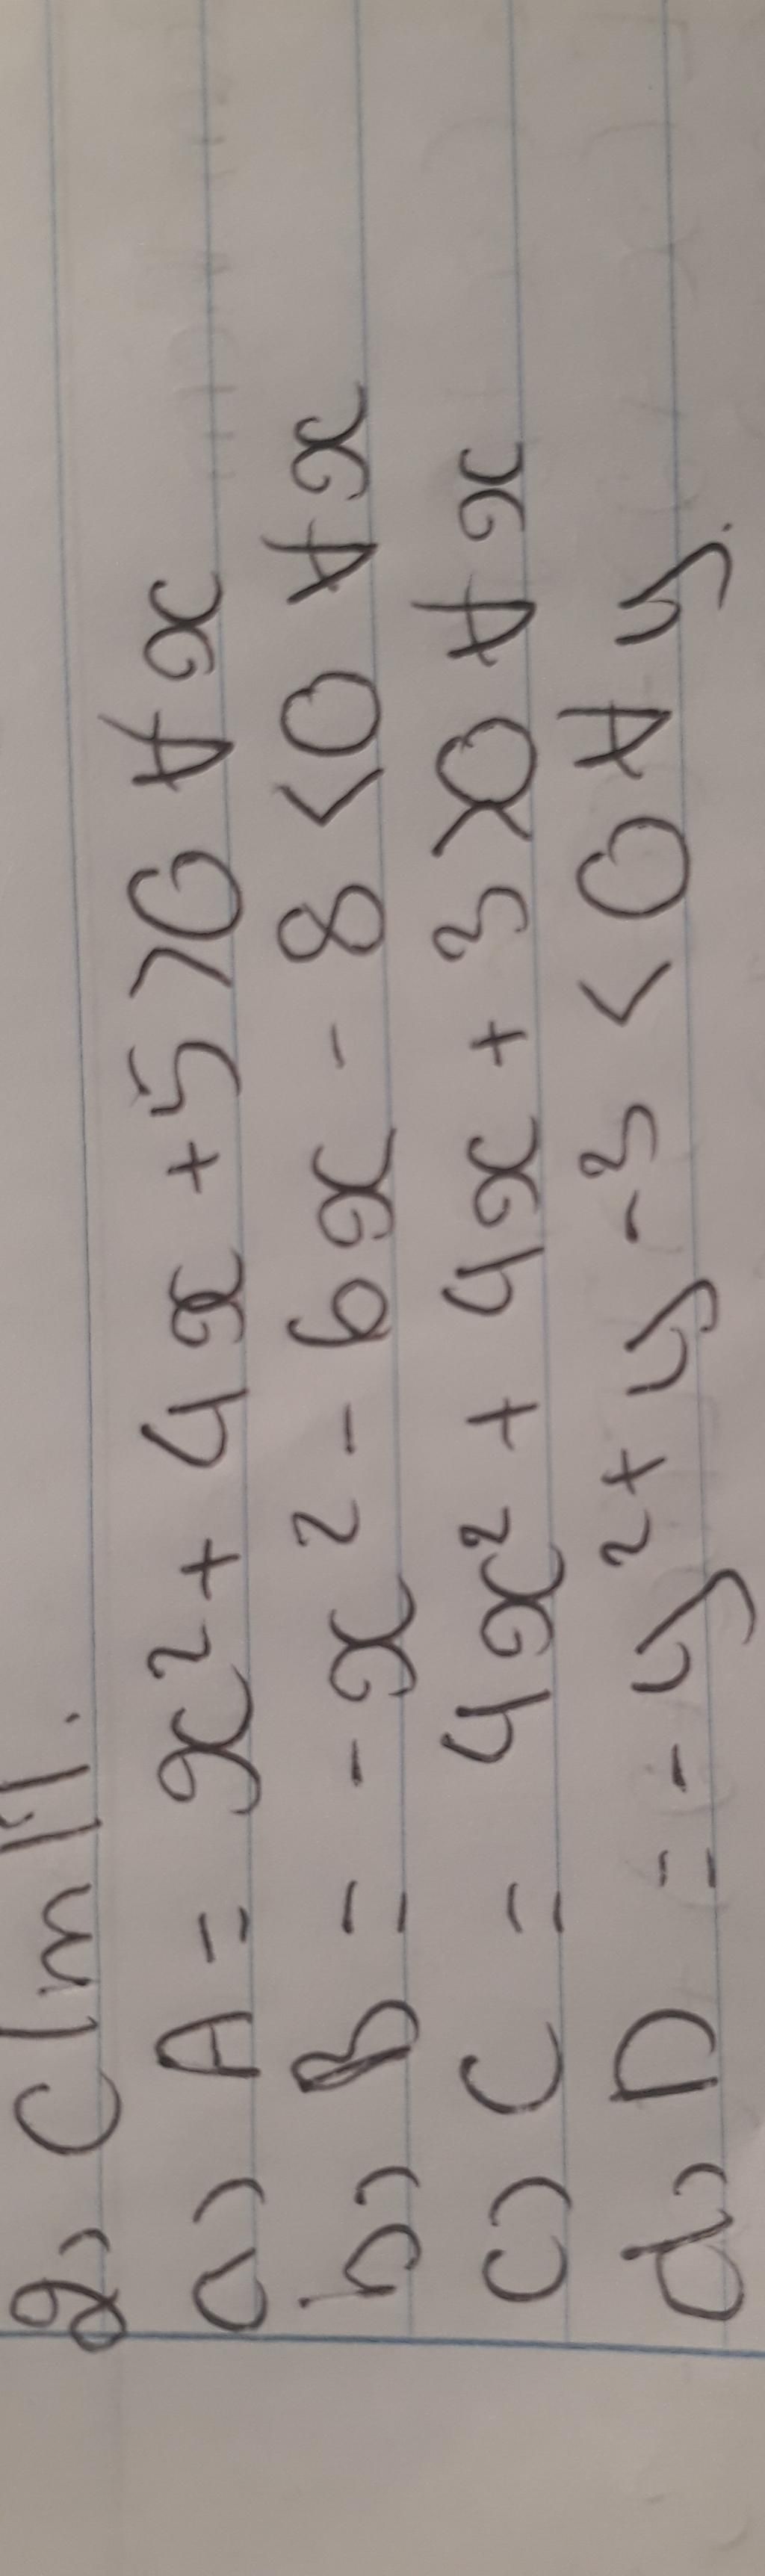 2) CmR.
a) A = x² + 4x + 5 > 0 ∀ x
b) B = - x² - 6x - 8 < 0 ∀ x
c) C = 4x² + 4x + 3 > 0 ∀ x
d) D = - y² + y - 3 < 0 ∀ y.